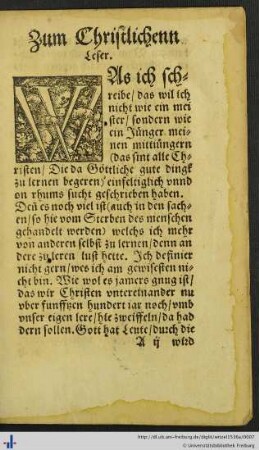 Zum Christlichenn
Leser.
WAs ich sch-
reibe/ das wil ich
nicht wie ein mei
ster/ sondern wie
ein Jünger mei-
nen mittiüngern
(das sint alle Ch-
risten/ Die da Göttliche gute dingk
zu lernen begeren/ einfeltiglich vnnd
on rhums sucht geschrieben haben.
Deñ es noch viel ist(auch in den sach-
en/so hie vom Sterben des menschen
gehandelt werden) welchs ich mehr
von anderen selbst zu lernen/denn an
dere zu leren lust hette. Ich definier
nicht gern/wes ich am gewissesten ni-
cht bin. Wie wol es jamers gnug ist/
das wir Christen vntereinander nu
vber funffzen hundert iar noch/vmb
vnser eigen lere/hie zweiffeln/da had
dern sollen. Gott hat Leute/durch die
A ij wird
http://dl.ub.uni-freiburg.de/diglit/
© Universitätsbibliothek Freiburg